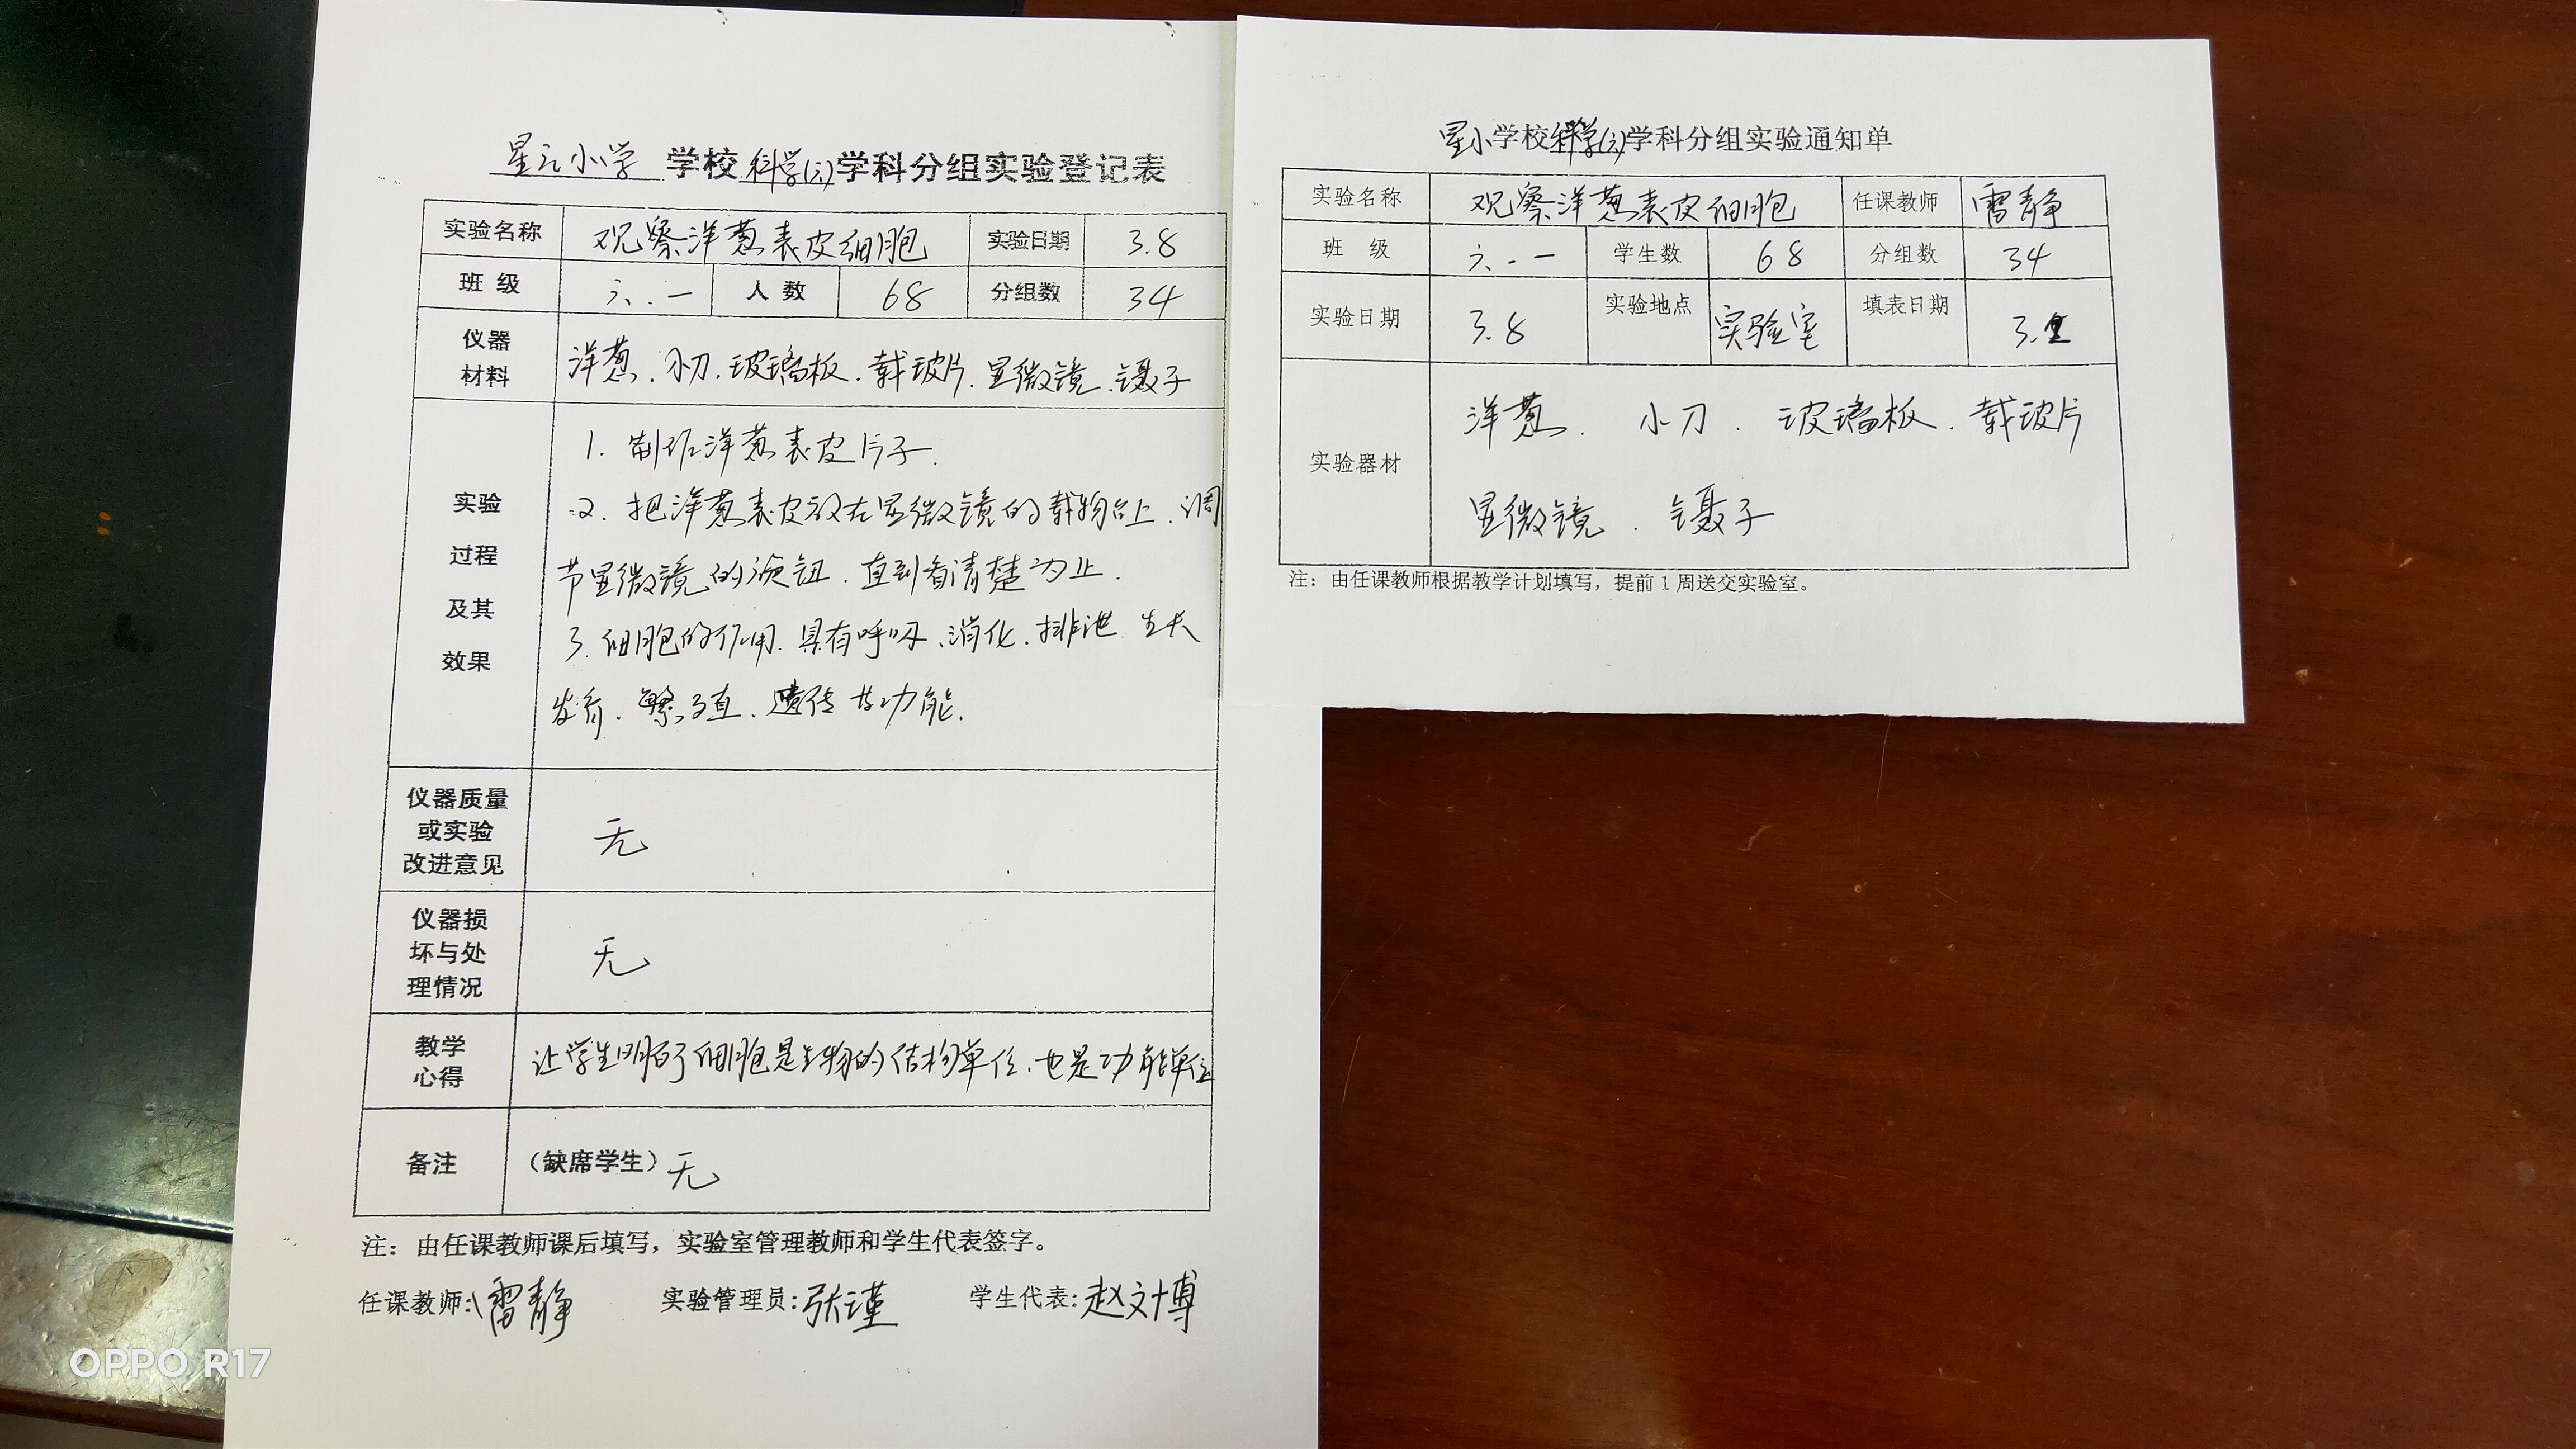 星元小学 学校 科学(六) 学科分组实验登记表
实验名称 观察洋葱表皮细胞 实验日期 3.8
班 级 六.一 人 数 68 分组数 34
仪器
材料
洋葱、小刀、玻璃板、载玻片、显微镜、镊子
实验
过程
及其
效果
1. 制作洋葱表皮片子.
2. 把洋葱表皮放在显微镜的载物台上、调
节显微镜的旋钮、直到看清楚为止.
3. 细胞的作用、具有呼吸、消化、排泄 生长
发育、繁殖、遗传等功能.
仪器质量
或实验
改进意见
无
仪器损
坏与处
理情况
无
教学
心得
让学生明白了细胞是生物的结构单位、也是功能单位
备注 (缺席学生) 无
注：由任课教师课后填写，实验室管理教师和学生代表签字。
任课教师: 雷静 实验管理员: 张谨 学生代表: 赵文博
星小学校科学(六)学科分组实验通知单
实验名称 观察洋葱表皮细胞 任课教师 雷静
班 级 六.一 学生数 68 分组数 34
实验日期 3.8 实验地点 实验室 填表日期 3.
实验器材
洋葱、 小刀、 玻璃板、 载玻片
显微镜、 镊子
注：由任课教师根据教学计划填写，提前1周送交实验室。
OPPO R17